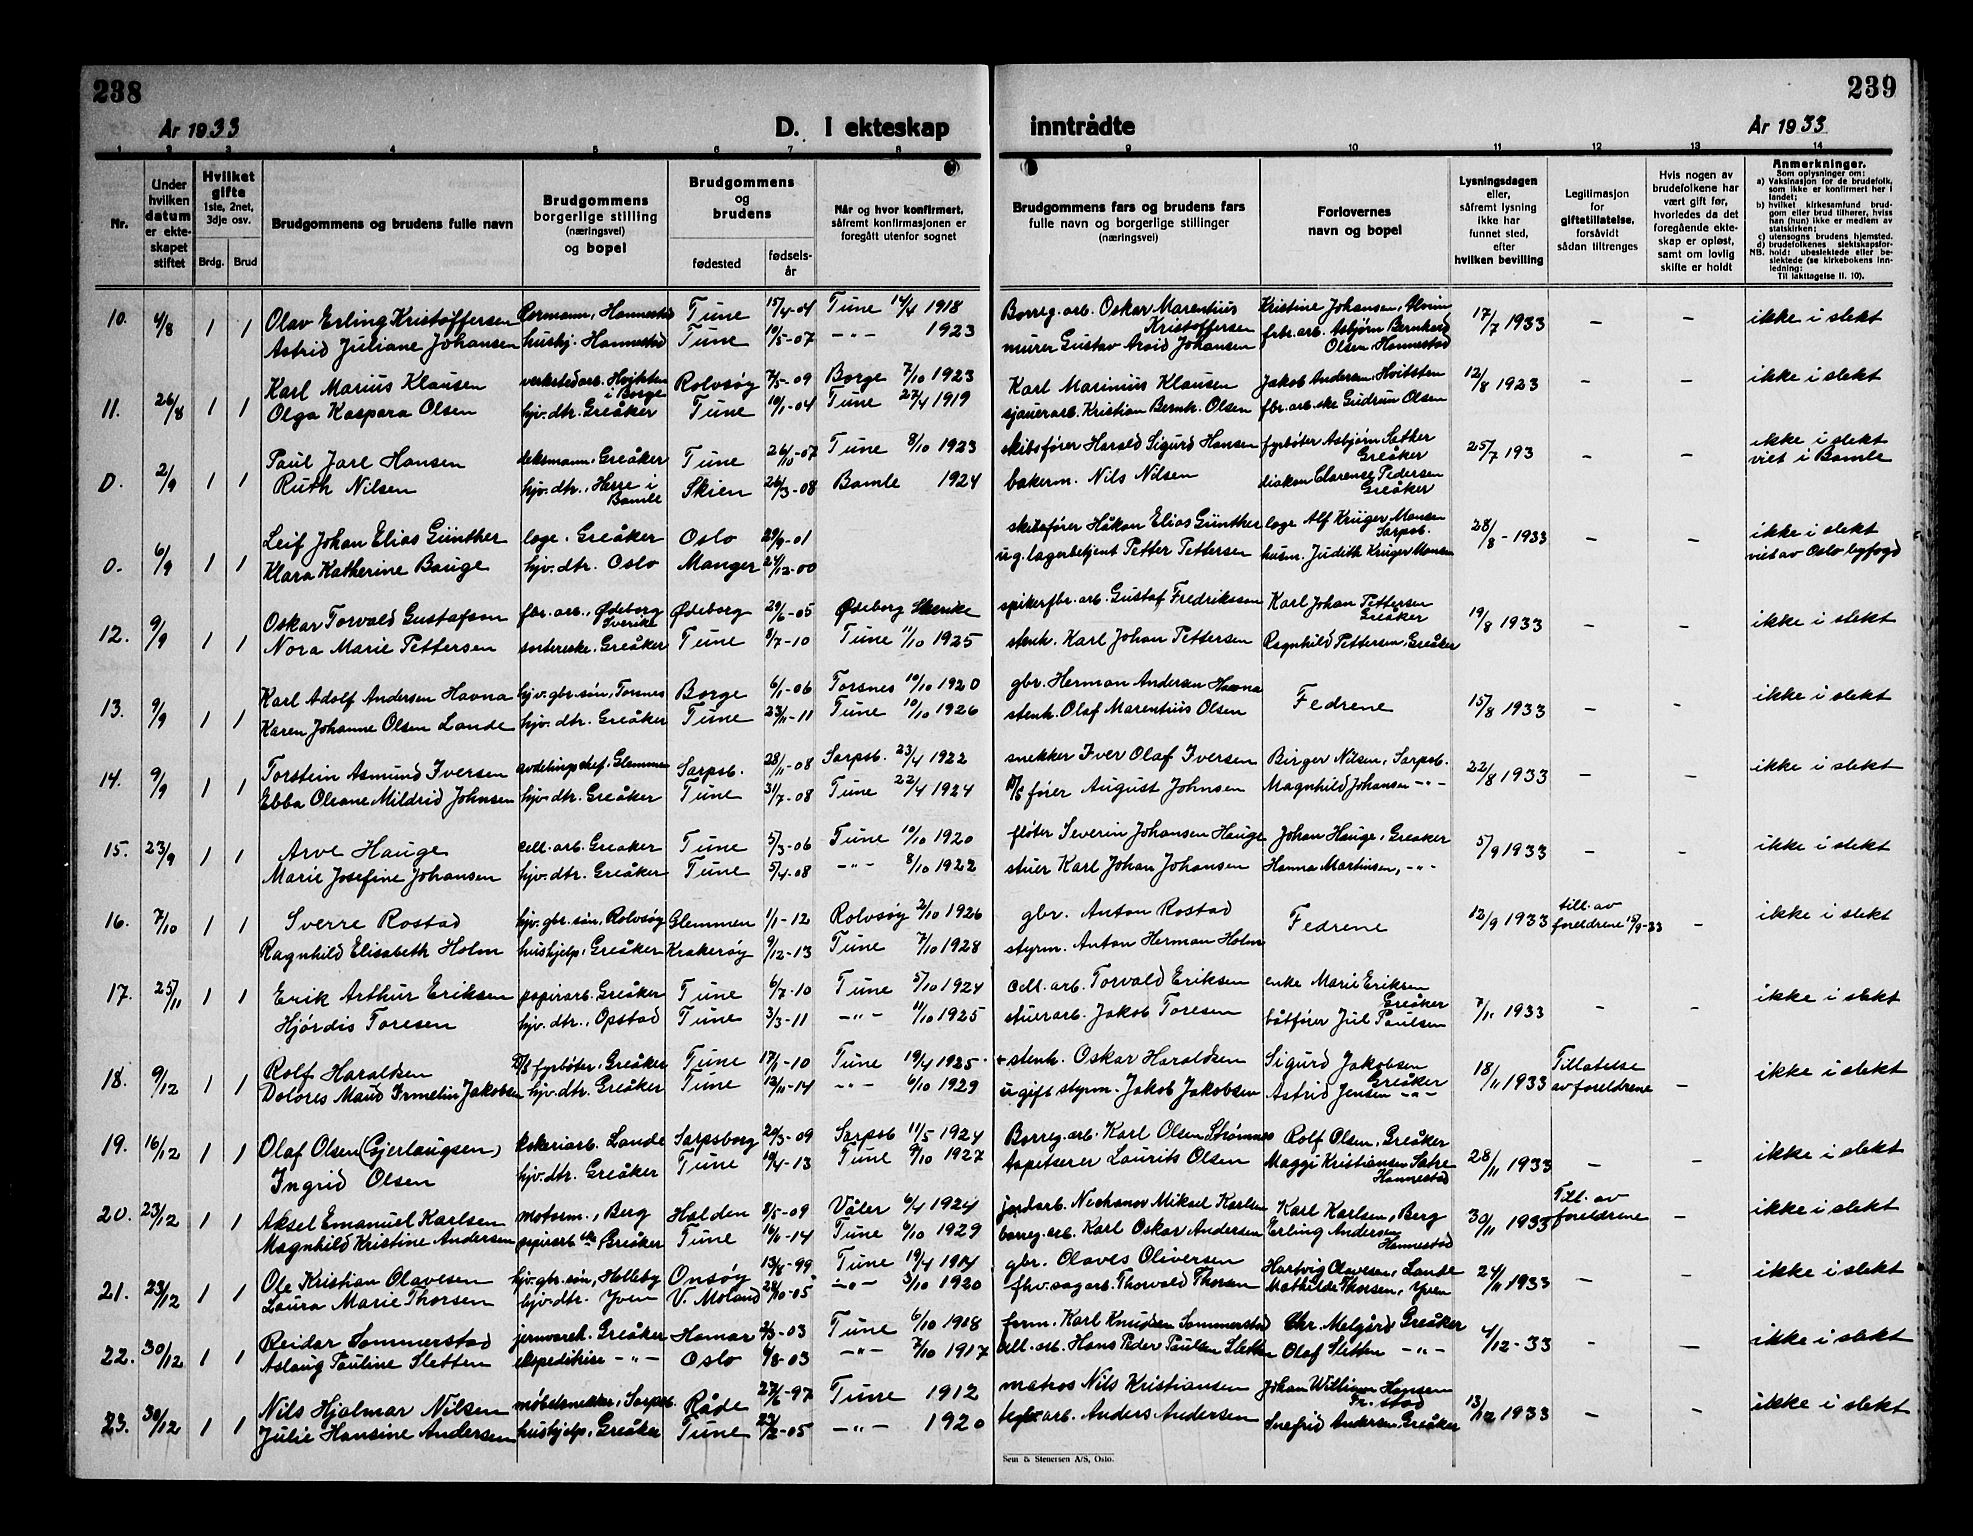 238
239
År 1933
D. I ekteskap inntrådte
År 1933
1 2 3 4 5 6 7 8 9 10 11 12 13 14
Nr.
Under hvilken datum er ekteskapet stiftet
Hvilket gifte 1ste, 2net, 3dje osv.
Brdg. Brud
Brudgommens og brudens fulle navn
Brudgommens borgerlige stilling (næringsvei) og bopel
Brudgommens og brudens
fødested
fødselsår
Når og hvor konfirmert, såfremt konfirmasjonen er foregått utenfor sognet
Brudgommens fars og brudens fars fulle navn og borgerlige stillinger (næringsvei)
Forlovernes navn og bopel
Lysningsdagen eller, såfremt lysning ikke har funnet sted, efter hvilken bevilling
Legitimasjon for giftetillatelse, forsåvidt sådan tiltrenges
Hvis nogen av brudefolkene har vært gift før, hvorledes da det foregående ekteskap er opløst, samt om lovlig skifte er holdt
Anmerkninger.
Som oplysninger om:
a) Vaksinasjon for de brudefolk, som ikke er konfirmert her i landet;
b) hvilket kirkesamfund brudgom eller brud tilhører, hviss han (hun) ikke er medlem av statskirken;
c) utensogns brudens hjemsted.
d) brudefolkenes slektskapsforhold: ubeslektede eller beslektede (se kirkebokens innledning;
NB. Til iakttagelse II. 10).
10. 4/8 1 1 Olav Erling Kristoffersen formann, Hannestad Tune 15/4-04 Tune 14/4 1918 Borreg. arb. Oskar Marentius Kristoffersen Kristine Johansen, 17/7 1933 - - ikke i slekt
Astrid Juliane Johansen hushj. Hannestad Tune 10/5-07 -"- 1923 murer Gustav Arvid Johansen fbr. arb. Asbjørn Bernhard Olsen Hannestad
11. 26/8 1 1 Karl Marius Klausen verkstedarb. Hvitsten i Borge Rolvsøy 7/5-09 Borge 7/10 1923 Karl Marinius Klausen Jakob Andersen, Hvitsten 12/8 1923 - - ikke i slekt
Olga Kaspara Olsen hjv. dtr. Greåker Tune 10/1-04 Tune 27/4 1919 sjauerarb. Kristian Bernh. Olsen fbr. arb.ske Gudrun Olsen
D. 2/9 1 1 Paul Jarl Hansen deksmann, Greåker Tune 26/10-07 Tune 8/10 1923 skibsfører Harald Sigurd Hansen fyrbøter Asbjørn Sæther Greåker 25/7 193 - - ikke i slekt
Ruth Nilsen hjv. dtr., Herre i Bamle Skien 26/3-08 Bamle 1924 bakerm. Nils Nilsen diakon Clarence Pedersen Greåker viet i Bamle
O. 6/9 1 1 Leif Johan Elias Günther lege. Greåker Oslo 29/9-01 skibsfører Håkon Elias Günther lege Alf Krüger Monsen Sarpsb. 28/8-1933 - - ikke i slekt
Klara Katherine Bauge hjv. dtr. Oslo Manger 24/12-00 u.g. lagerbetjent Petter Pettersen husm. Judith Krüger Monsen viet av Oslo byfogd
12. 9/9 1 1 Oskar Torvald Gustafson fbr. arb., Ødeborg Sverike Ødeborg 29/6-05 Ødeborg Sverike spikerfbr. arb. Gustaf Fredriksson Karl Johan Pettersen Greåker 19/8 1933 - - ikke i slekt
Nora Marie Pettersen sorterske. Greåker Tune 8/7-10 Tune 11/10 1925 stenh. Karl Johan Pettersen Ragnhild Pettersen, Greåker
13. 9/9 1 1 Karl Adolf Andersen Havna hjv. gbr. søn, Torsnes Borge 6/1-06 Torsnes 10/10 1920 gbr. Herman Andersen Havna Fedrene 15/8 1933 - - ikke i slekt
Karen Johanne Olsen Lande hjv. dtr. Greåker Tune 23/11-11 Tune 10/10 1926 stenh. Olaf Marentius Olsen
14. 9/9 1 1 Torstein Asmund Iversen avdelingschef. Glemmen Sarpsb. 28/11-08 Sarpsb. 23/4 1922 snekker Iver Olaf Iversen Birger Nilsen, Sarpsb. 22/8 1933 - - ikke i slekt
Ebba Oleane Mildrid Johnsen hjv. dtr. Greåker Tune 31/7-08 Tune 22/4 1924 fører August Johnsen Magnhild Johansen -"-
15. 23/9 1 1 Arve Hauge cell. arb. Greåker Tune 5/3-06 Tune 10/10 1920 fløter Severin Johansen Hauge Johan Hauge, Greåker 5/9 1933 - - ikke i slekt
Marie Josefine Johansen hjv. dtr. Greåker Tune 5/4-08 -"- 8/10 1922 stuer Karl Johan Johansen Hanna Martinsen, -"-
16. 7/10 1 1 Sverre Rostad hjv. gbr. søn. Rolvsøy Glemmen 1/1-12 Rolvsøy 2/10 1926 gbr. Anton Rostad Fedrene 12/9 1933 till. av foreldrene - ikke i slekt
Ragnhild Elisabeth Holm hushjelp, Greåker Krakerøy 9/12-13 Tune 7/10 1928 styrm. Anton Herman Holm
17. 25/11 1 1 Erik Arthur Eriksen papirarb. Greåker Tune 6/7-10 Tune 5/10 1924 cell. arb. Torvald Eriksen enke Marie Eriksen Greåker 7/11 1933 - - ikke i slekt
Hjørdis Toresen hjv. dtr., Opstad Tune 3/3-11 -"- 11/10 1925 stuerarb. Jakob Toresen båtfører Jul Paulsen
18. 9/12 1 1 Rolf Haraldsen fyrbøter, Greåker Tune 17/1-10 Tune 19/4 1925 stenh. Oskar Haraldsen Sigurd Jakobsen Greåker 18/11 1933 Tillatelse av foreldrene - ikke i slekt
Dolores Maud Irmelin Jakobsen hjv. dtr. Greåker Tune 13/11-14 -"- 6/10 1929 ugift styrm. Jakob Jakobsen Astrid Jensen -"-
19. 16/12 1 1 Olaf Olsen (Gjerlaugsen) kokeriarb. Lande Sarpsborg 20/3-09 Sarpsb 11/5 1924 Borreg. arb. Karl Olsen Strømnes Rolf Olsen, Greåker 28/11 1933 - - ikke i slekt
Ingrid Olsen hjv. dtr. Greåker Tune 10/4-13 Tune 9/10 1927 Tapetserer Laurits Olsen Maggi Kristiansen Sætre Hannestad
20. 23/12 1 1 Aksel Emanuel Karlsen motorm., Berg Halden 8/5-09 Våler 6/4 1924 jordarb. Mikael Karlsen Karl Karlsen, Berg 30/11 1933 Till. av foreldrene - ikke i slekt
Magnhild Kristine Andersen papirarb.ske Greåker Tune 16/11-14 Tune 6/10 1929 borreg. arb. Karl Oskar Andersen Erling Andersen Hannestad
21. 23/12 1 1 Ole Kristian Olavesen hjv. gbr. søn, Holleby Onsøy 13/8-99 Tune 19/4 1914 gbr. Olaves Oliversen Hartvig Olavesen, Lande 24/11 1933 - - ikke i slekt
Laura Marie Thorsen hjv. dtr. Yven V. Moland 28/10-05 -"- 3/10 1920 fhv. sagarb. Thorvald Thorsen Mathilde Thorsen, Yven
22. 30/12 1 1 Reidar Sommerstad jernvareh. Greåker Hamar 2/3-03 Tune 6/10 1918 form. Karl Knudsen Sommerstad Chr. Melgård Greåker 4/12-33 - ikke i slekt
Aslaug Pauline Sletten ekspeditrise -"- Oslo 6/8-03 -"- 7/10 1917 cell. arb. Hans Peder Paulsen Sletten Olaf Sletten -"-
23. 30/12 1 1 Nils Hjalmar Nilsen møbelsnekker, Sarpsb. Råde 27/6-97 Tune 1912 matros Nils Kristiansen Johan William Hansen Fr.stad 13/12 1933 - - ikke i slekt
Julie Hansine Andersen hushjelp, Greåker Tune 23/2-05 -"- 1920 teglv. arb. Anders Andersen Snefrid Andersen, Greåker
Sem & Stenersen A/S, Oslo.